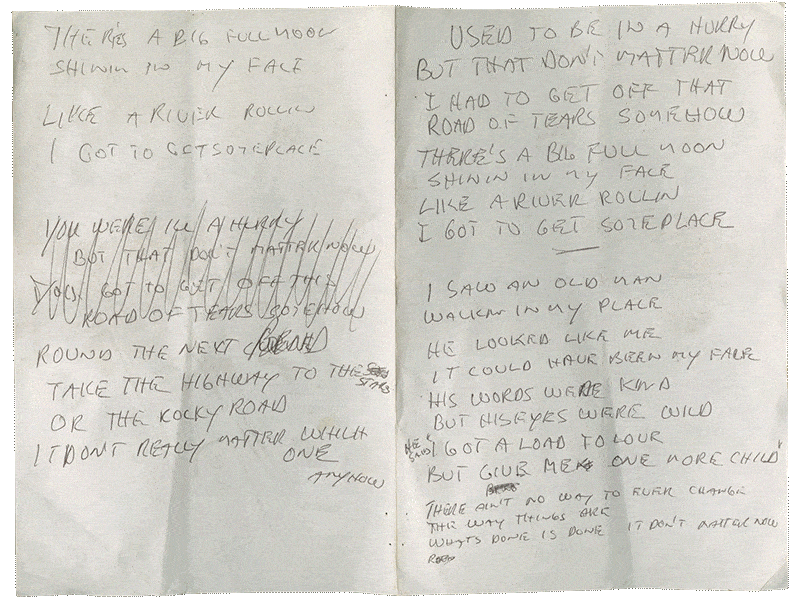 THERE'S A BIG FULL MOON
SHININ IN MY FACE
LIKE A RIVER ROLLIN
I GOT TO GET SOMEPLACE
YOU WERE IN A HURRY
BUT THAT DON'T MATTER NOW
YOU GOT TO GET OFF THIS
ROAD OF TEARS SOMEHOW
ROUND THE NEXT
TAKE THE HIGHWAY TO THE
STARS
OR THE ROCKY ROAD
IT DON'T REALLY MATTER WHICH
ONE
ANYHOW
USED TO BE IN A HURRY
BUT THAT DON'T MATTER NOW
I HAD TO GET OFF THAT
ROAD OF TEARS SOMEHOW
THERE'S A BIG FULL MOON
SHININ IN MY FACE
LIKE A RIVER ROLLIN
I GOT TO GET SOMEPLACE
I SAW AN OLD MAN
WALKIN IN MY PLACE
HE LOOKED LIKE ME
IT COULD HAVE BEEN MY FACE
HIS WORDS WERE KIND
BUT HIS EYES WERE WILD
HE SAID "I GOT A LOAD TO LOVE
BUT GIVE ME ONE MORE CHILD"
THERE AIN'T NO WAY TO EVER CHANGE
THE WAY THINGS ARE
WHATS DONE IS DONE IT DON'T MATTER NOW